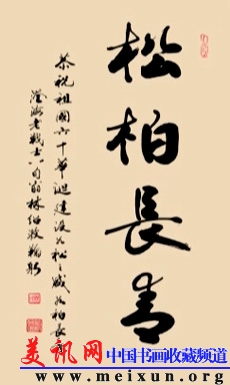 松柏長青
恭祝祖國六十華誕建設如松之盛如柏長青
老戰士八旬翁林
美讯网
中国书画收藏频道
www.meixun.org